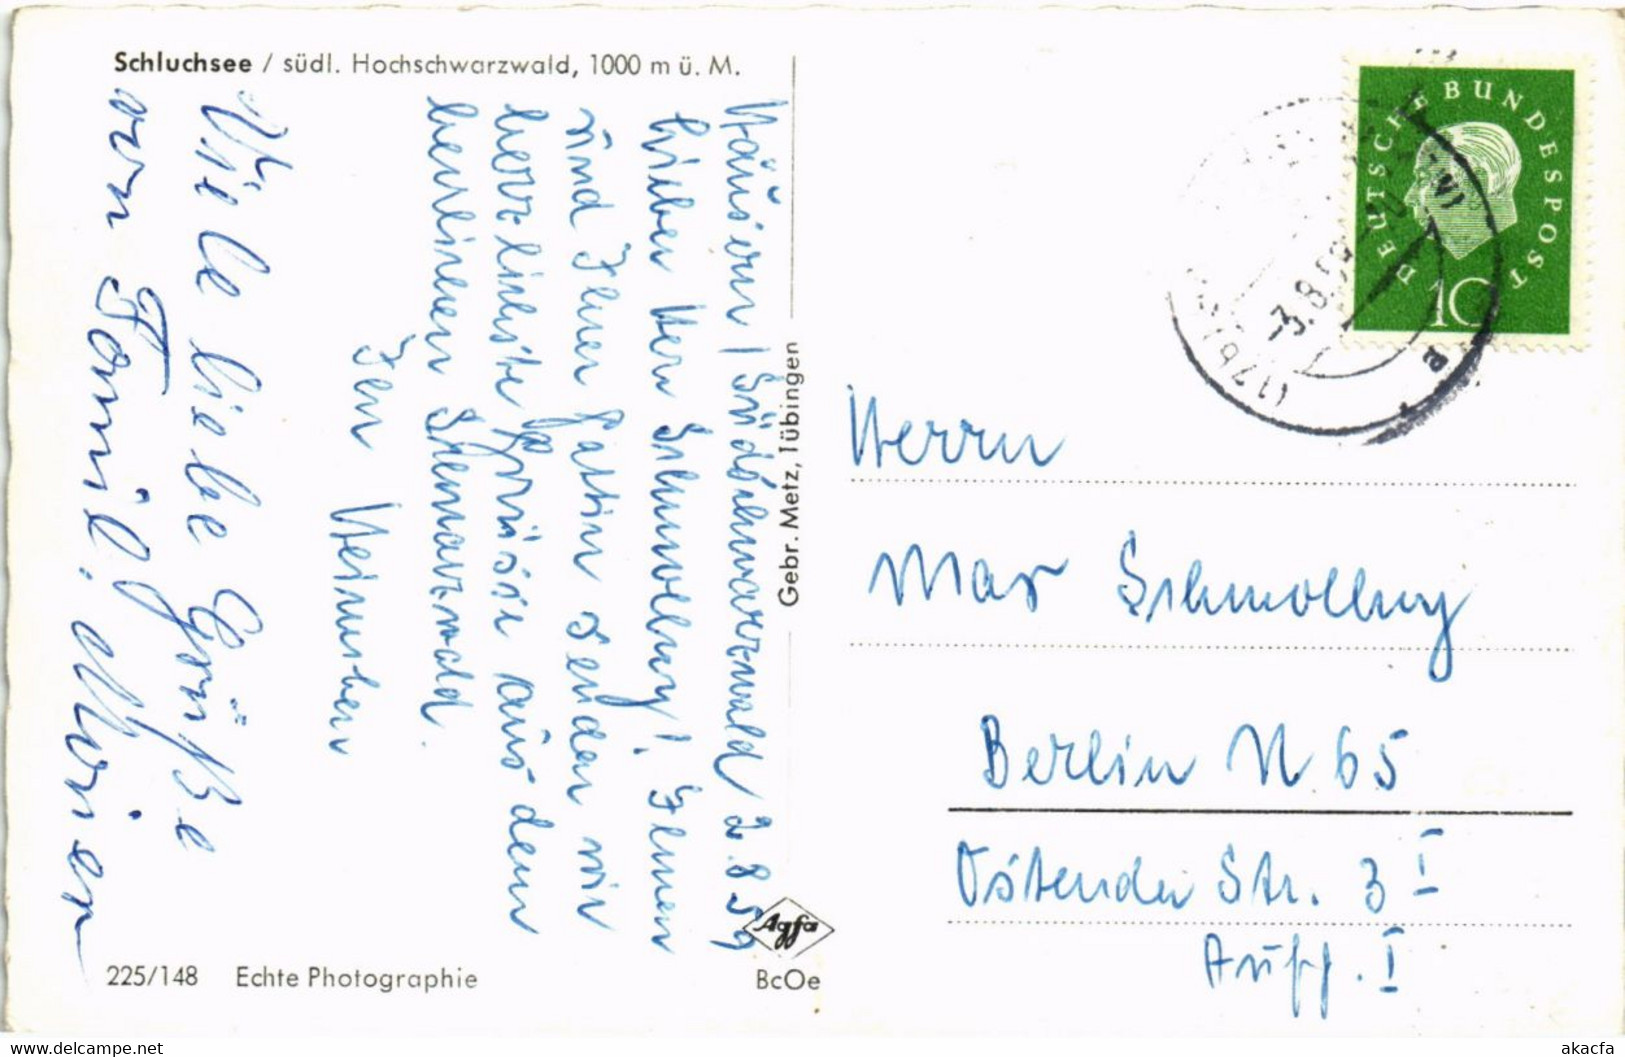 Schluchsee / südl. Hochschwarzwald, 1000 m ü. M.
Häusern / Südschwarzwald 2.8.59
Lieber Herr Schmollny! Ihnen
und Ihrer Gattin senden wir
herzlichste Grüsse aus dem
herrlichen Schwarzwald.
Ihr
Viele liebe Grüße
von Famil.
Gebr. Metz, Tübingen
Agfa
BcOe
225/148 Echte Photographie
DEUTSCHE BUNDESPOST
10
(17b)
-3.8.59
a
Herrn
Max Schmollny
Berlin N 65
Ostender Str. 3 I
Aufg. I
akacfa